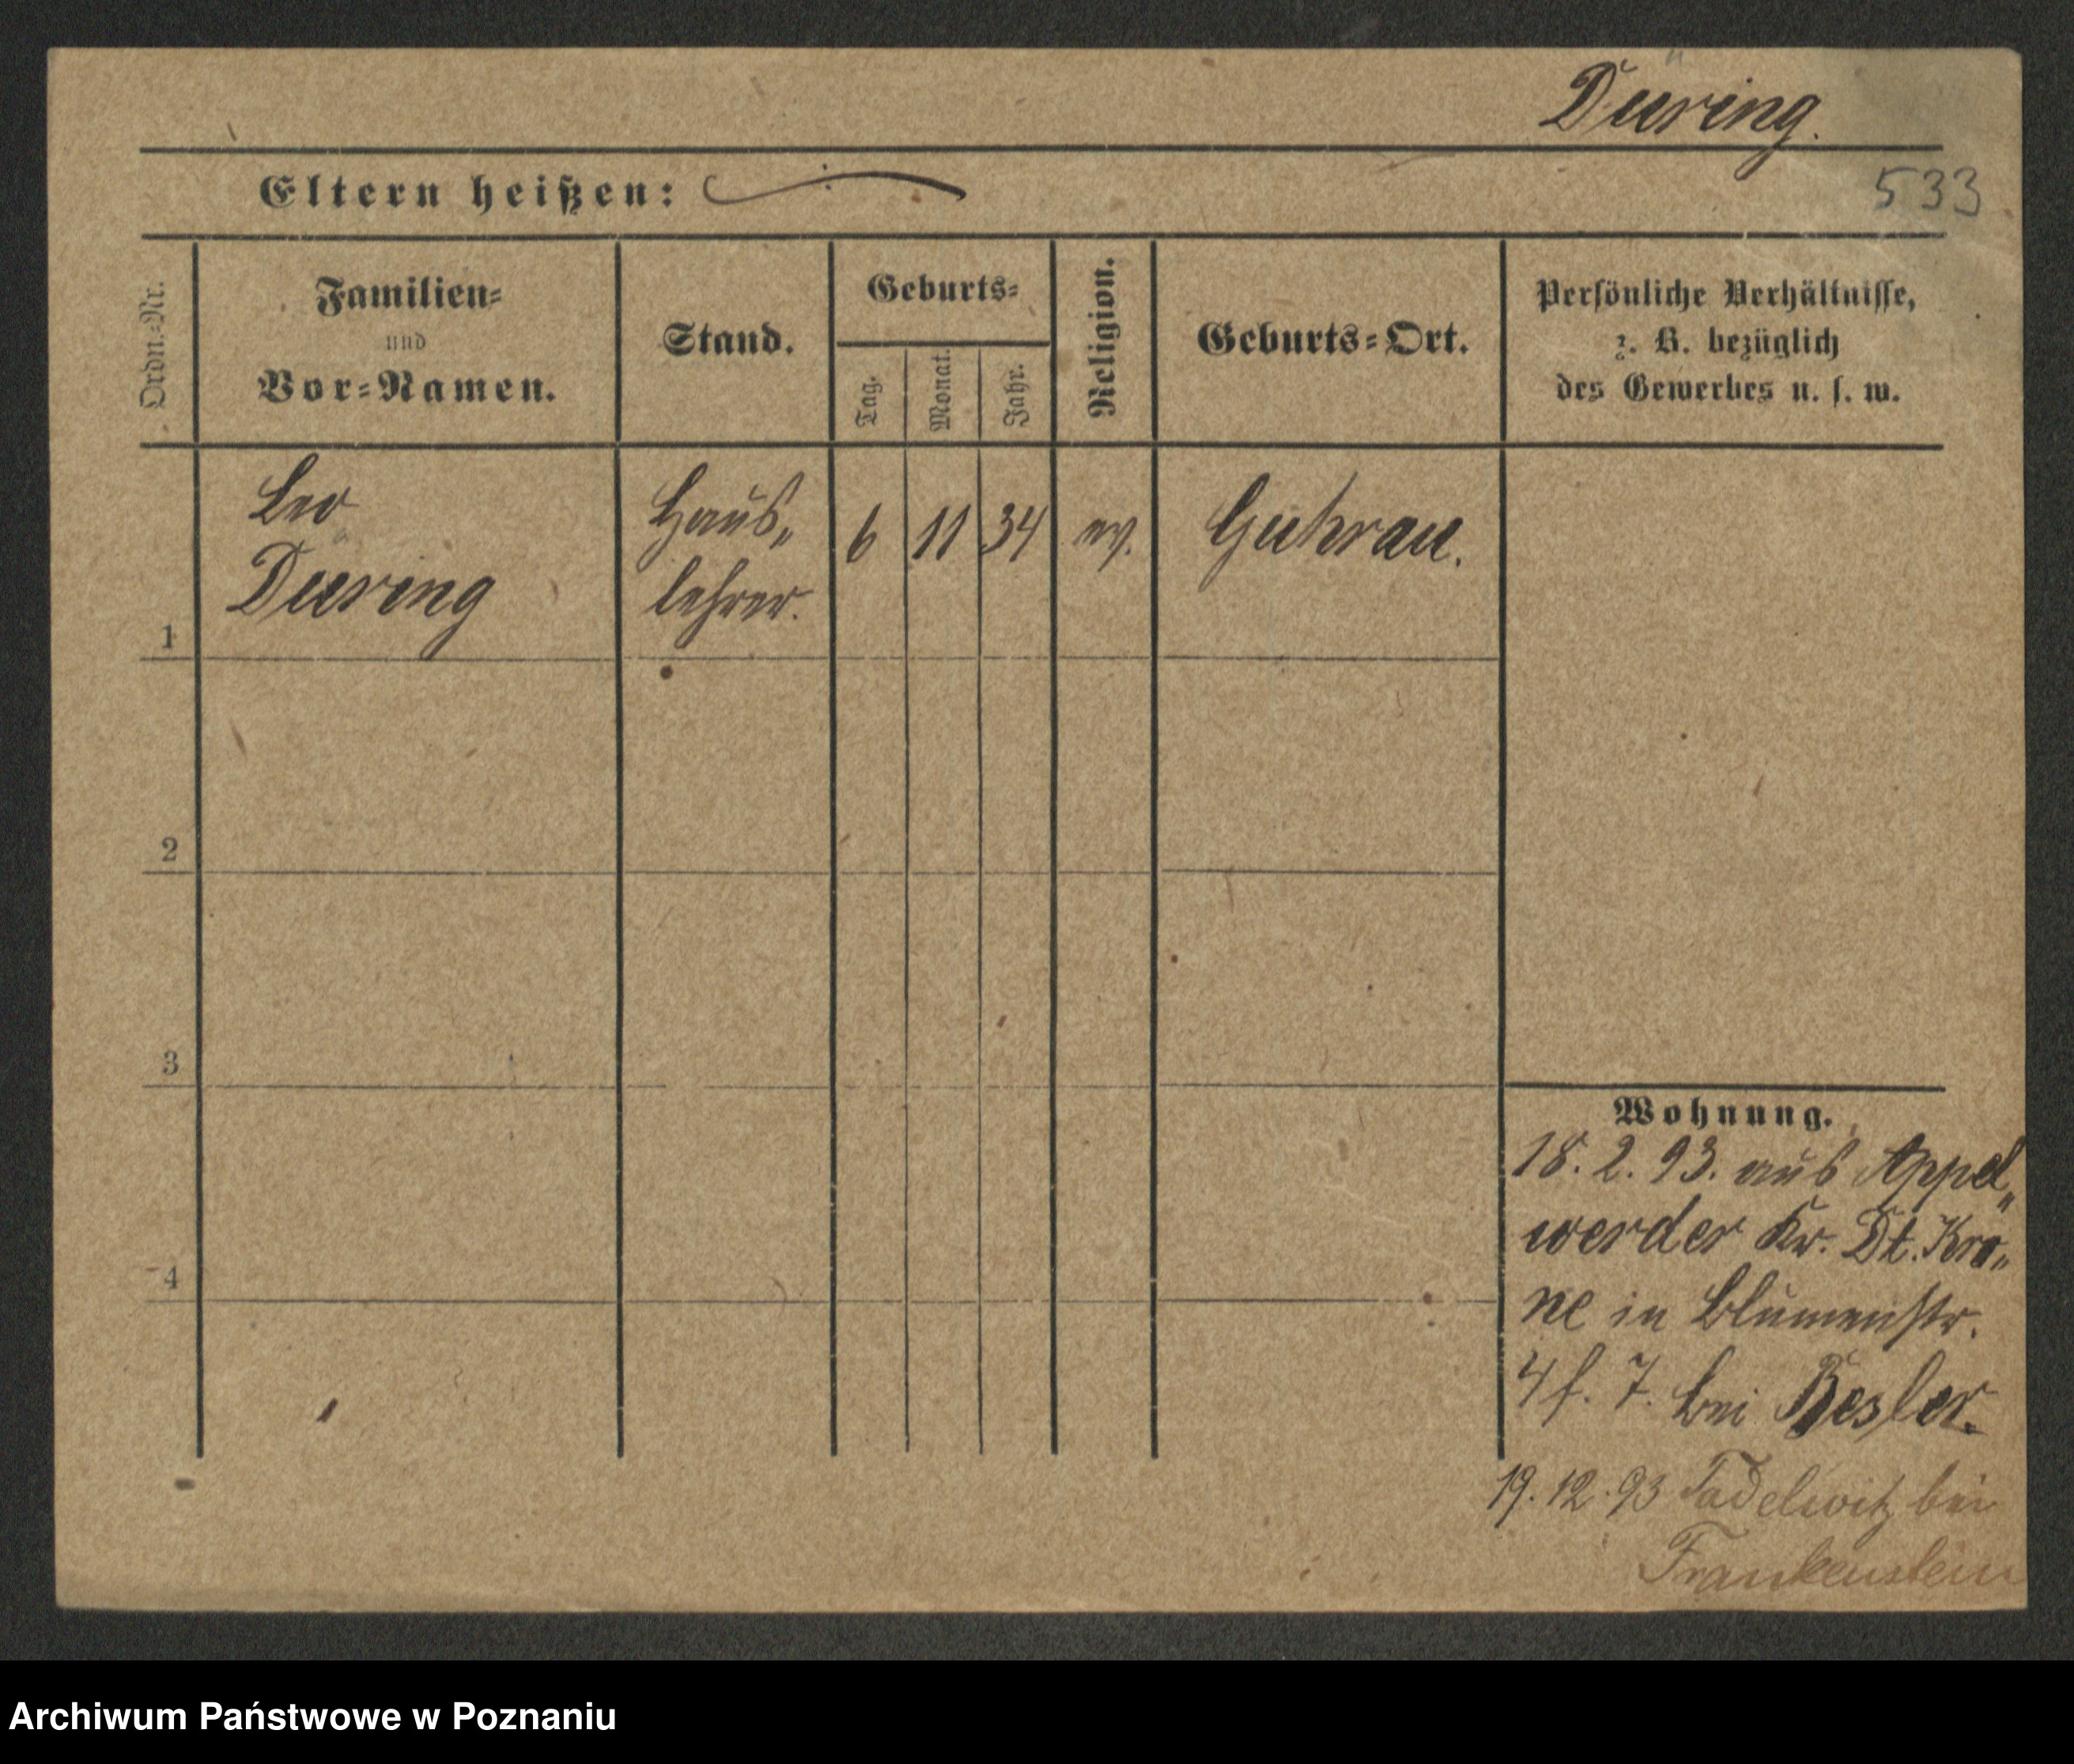 Düring.
Eltern heißen:
533
Ordn.=Nr.
Familien=
und
Vor=Namen.
Stand.
Geburts=
Tag.
Monat.
Jahr.
Religion.
Geburts=Ort.
Persönliche Verhältnisse,
z. B. bezüglich
des Gewerbes u. s. w.
Leo
Düring
Haus„
lehrer.
6
11
34
ev.
Guhrau.
1
2
3
4
Wohnung.
18. 2. 93. aus Appel„
werder Kr. Dt. Kro„
ne in Blumenstr.
4 f. 7. bei Besler.
19. 12. 93 Tadelwitz bei
Frankenstein
Archiwum Państwowe w Poznaniu